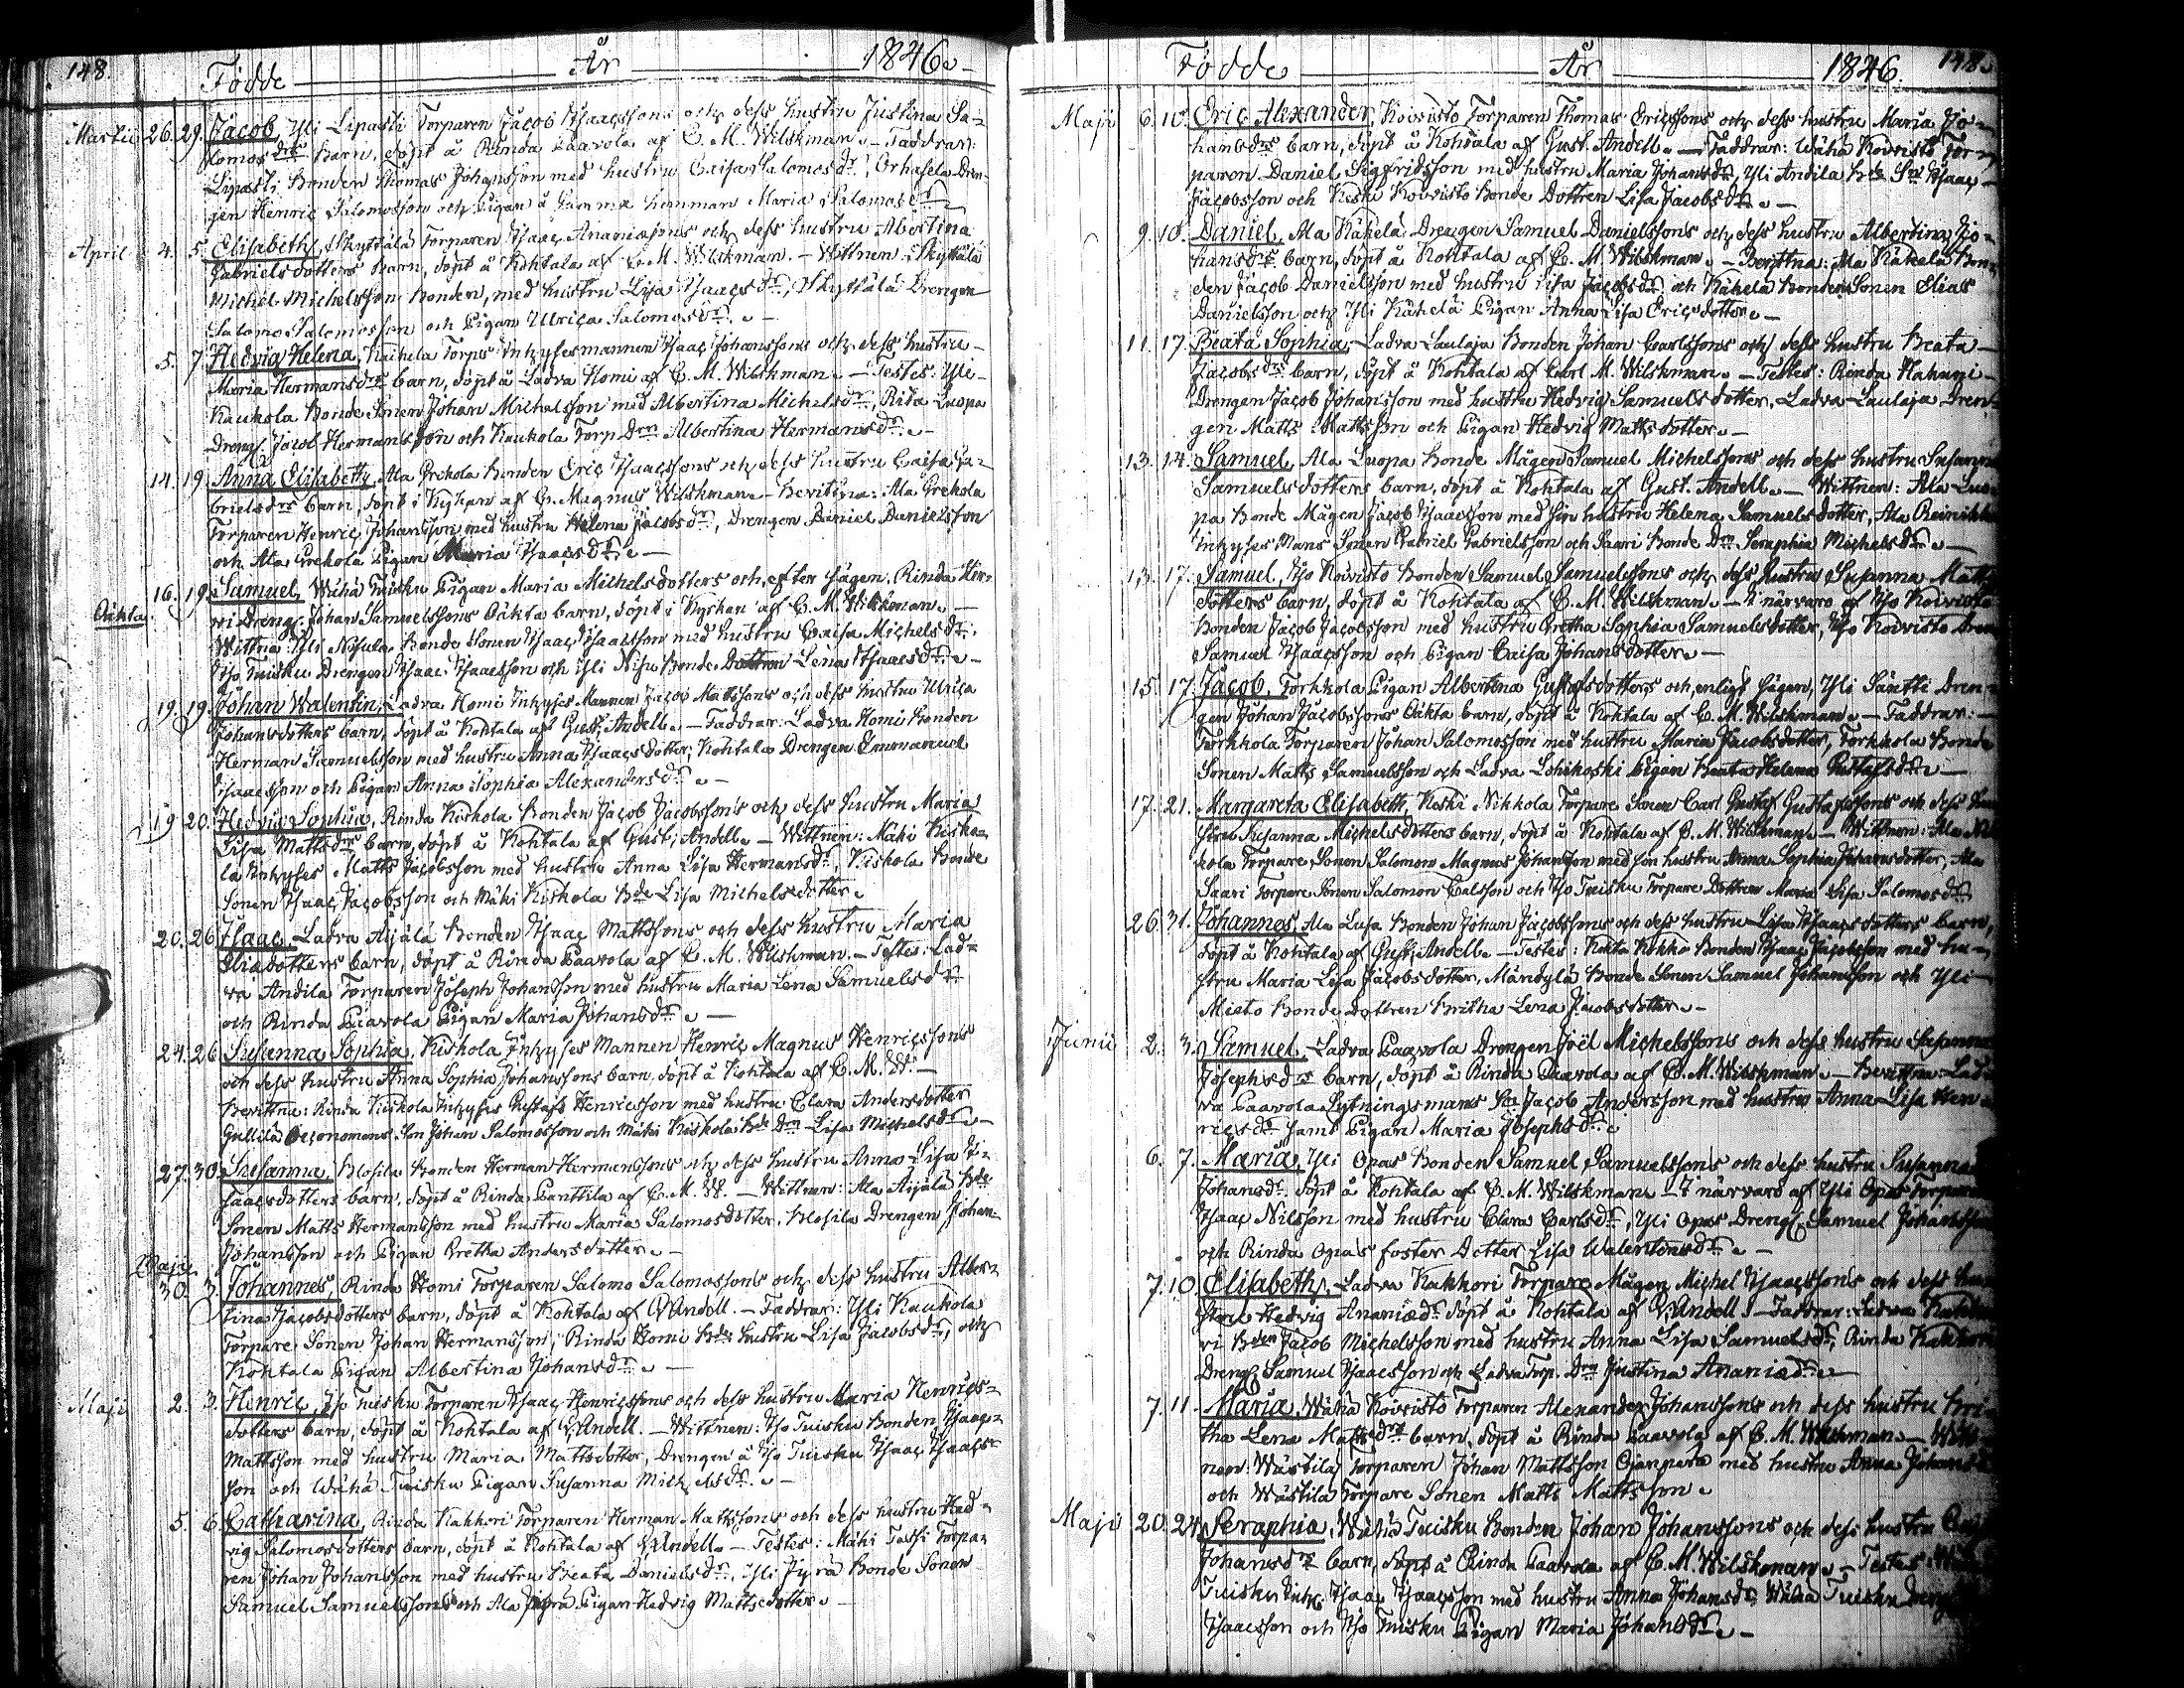 148
Födde År 1846.
Martii 26. 29. Jacob, Yli Lipasti Torparen Jacob Isaacssons och dess hustru Justina Sa-
lomos drs barn, döpt å Rinda Paavola af C. M. Wilskman. - Faddrar:
Lipasti Bonden Thomas Johansson med hustru Caisa Salomos dr, Orhasela Dren-
gen Henric Salomosson och Pigan å samma hemman Maria Salomos dr
April 4. 5. Elisabeth, Skyttälä Torparen Isaac Ananiæsons och dess hustru Albertina
Gabrielsdotters Barn, döpt å Kohtala af C. M. Wilskman. - Wittnen: Skyttälä
Michel Michelsson Bonden, med hustru Lisa Isaacs dr, Skyttälä Drengen
Salomo Salomosson och Pigan Ulrica Salomos dr. -
5. 7. Hedvig Helena, Kaihela Torps Inhysesmannen Isaac Johanssons och dess hustru
Maria Hermansdrs barn, döpt å Ladva Homi af C. M. Wilskman. - Testes: Yli-
Kaukola Bonde Sonen Johan Michelsson med Albertina Michelsdr,
Dreng. Jacob Hermansson och Kaukola Torp. Drn Albertina Hermansdr. -
14. 19. Anna Elisabeth, Ala Grekola Bonden Eric Isaacssons och dess hustru Caisa Ga-
brielsdrs barn, döpt i Kyrkan af C. Magnus Wilskman - Bevittna: Ala Grekola
Torparen Henric Johansson med hustru Helena Jacobsdr, Drengen Daniel Danielsson
och Ala Grekola Pigan Maria Isaacsdr. -
Oäkta. 16. 19. Samuel, Wähä Tuisku Pigan Maria Michelsdotters och, efter sägen, Rinda
Dreng. Johan Samuelssons Oäkta barn, döpt i Kyrkan af C. M. Wilskman. -
Wittna: Yli Nisula Bonde Sonen Isaac Isaacsson med hustru Caisa Michelsdr.
Iso Tuisku Drengen Isaac Isaacsson och Yli Nisu Bonde Dottren Lena Isaacsdr. -
19. 19. Johan Walentin, Ladva Homi Inhyses Mannen Jacob Mattssons och dess hustru Ulrica
Johansdotters barn, döpt å Kohtala af Gust. Andell. - Faddrar: Ladva Homi Bonden
Herman Samuelsson med hustru Anna Isaacsdotter, Kohtala Drengen Emmanuel
Isaacsson och Pigan Anna Sophia Alexandersdr. -
19. 20. Hedvig Sophia, Rinda Kiskola Bonden Jacob Jacobssons och dess hustru Maria
Lisa Mattsdrs barn, döpt å Kohtala af Gust. Andell. - Wittnen: Mäki Kisko-
la Inhyses Matts Jacobsson med hustru Anna Lisa Hermansdr, Kiskola Bonde
Sonen Isaac Jacobsson och Mäki Kiskola Bde Lisa Michelsdotter.
20. 26. Isaac, Ladva Äijälä Bonden Isaac Mattssons och dess hustru Maria
Eliædotters barn, döpt å Rinda Paavola af C. M. Wilskman. - Testes: Lad-
va Andila Torparen Joseph Johansson med hustru Maria Lena Samuelsdr
och Rinda Paavola Pigan Maria Johansdr. -
24. 26. Susanna Sophia, Kiskola Inhyses Mannen Henric Magnus Henricssons
och dess hustru Anna Sophia Johanssons barn, döpt å Kohtala af C. M. W. -
Bevittna: Rinda Kiskola Inhyses Gustafs Henricsson med hustru Clara Andersdotter
Gullilä Oeconomens Son Johan Salomosson och Mäki Kiskola Bde Drn Lisa Michelsdr. -
27. 30. Susanna, Klosila Bonden Herman Hermanssons och dess hustru Anna Lisa I-
saacsdotters barn, döpt å Rinda Panttila af C. M. W. - Wittnen: Ala Äijälä Bde
Sonen Matts Hermansson med hustru Maria Salomosdotter, Klosila Drengen Johan
Johansson och Pigan Gretha Andersdotter. -
Maji
30. 3. Johannes, Rinda Homi Torparen Salomo Salomossons och dess hustru Alber-
tina Jacobsdotters barn, döpt å Kohtala af G. Andell. - Faddrar: Yli Kaukola
Torpare Sonen Johan Hermansson, Rinda Homi Bdes hustru Lisa Jacobsdr, och
Kohtala Pigan Albertina Johansdr. -
Maji 2. 3. Henric, Iso Tuisku Torparen Isaac Henricssons och dess hustru Maria Henrics-
dotters barn, döpt å Kohtala af G. Andell. - Wittnen: Iso Tuisku Bonden Isaac
Mattsson med hustru Maria Mattsdotter, Drengen å Iso Tuisku Isaac Isaacs-
son och Wähä Tuisku Pigan Susanna Michelsdr. -
5. 6. Catharina, Rinda Kakkori Torparen Herman Mattssons och dess hustru Hed-
vig Salomosdotters barn, döpt å Kohtala af G. Andell. - Testes: Mäki Tassi Torpa-
ren Johan Johansson med hustru Beata Danielsdr, Yli Jyrä Bonde Sonen
Samuel Samuelsson och Ala Jyrä Pigan Hedvig Mattsdotter. -
Födde År 1846. 148.
Maji 6. 10. Eric Alexander, Koivisto Torparen Thomas Ericssons och dess hustru Maria Jo-
hansdrs barn, döpt å Kohtala af Gust. Andell. - Faddrar: Wähä Koivisto Tor-
paren Daniel Sigfridsson med hustru Maria Johansdr, Yli Andila Bde Sn Isaac
Jacobsson och Keski Koivisto Bonde Dottren Lisa Jacobsdr. -
9. 10. Daniel, Ala Kähelä Drengen Samuel Danielssons och dess hustru Albertina Jo-
hansdrs barn, döpt å Kohtala af C. M. Wilskman. - Bevittna: Ala Kähelä Bon-
den Jacob Danielsson med hustru Lisa Jacobsdr och Kähelä Bonden Sonen Elias
Danielsson och Yli Kähelä Pigan Anna Lisa Ericsdotter. -
11. 17. Beata Sophia, Ladva Laulaja Bonden Johan Carlssons och dess hustru Beata
Jacobsdrs barn, döpt å Kohtala af Carl M. Wilskman. - Testes: Rinda Hakuni
Drengen Jacob Johansson med hustru Hedvig Samuelsdotter, Ladva Laulaja Dren-
gen Matts Mattsson och Pigan Hedvig Mattsdotter. -
13. 14. Samuel, Ala Luopa Bonde Mågen Samuel Michelssons och dess hustru Susanna
Samuelsdotters barn, döpt å Kohtala af Gust. Andell. - Wittnen: Ala Luo-
pa Bonde Mågen Jacob Isaacsson med sin hustru Helena Samuelsdotter, Ala
Inhyses Mans Sonen Gabriel Gabrielsson och Saari Bonde Drn Seraphia Michelsdr. -
13. 17. Samuel, Iso Koivisto Bonden Samuel Samuelssons och dess hustru Susanna Matts-
dotters barn, döpt å Kohtala af C. M. Wilskman. - I närvaro af Iso Koivisto
Bonden Jacob Jacobsson med hustru Gretha Sophia Samuelsdotter, Iso Koivisto
Samuel Isaacsson och Pigan Caisa Johansdotter. -
15. 17. Jacob, Torkkola Pigan Albertina Gustafsdotters och, enligt sägen, Yli Säntti Dren-
gen Johan Jacobssons Oäkta barn, döpt å Kohtala af C. M. Wilskman. - Faddrar: -
Torkkola Torparen Johan Salomosson med hustru Maria Jacobsdotter, Torkkola Bonde
Sonen Matts Samuelsson och Ladva Lohikoski Pigan Beata Helena Gustafsdr. -
17. 21. Margareta Elisabeth, Keski Nikkola Torpare Sonen Carl Gustaf Gustafssons och dess hu-
stru Susanna Michelsdotters barn, döpt å Kohtala af C. M. Wilskman. - Wittnen: Ala Nik-
kola Torpare Sonen Salomon Magnus Johansson med sin hustru Anna Sophia Johansdotter, Ala
Saari Torpare Sonen Salomon Carlsson och Iso Tuisku Torpare Dottren Maria Lisa Salomosdr
26. 31. Johannes, Ala Lusa Bonden Johan Jacobssons och dess hustru Lisa Isaacsdotters barn,
döpt å Kohtala af Gust. Andell. - Testes: Kokko Bonden Isaac Jacobsson med hu-
stru Maria Lisa Jacobsdotter, Mändylä Bonde Sonen Samuel Johansson och Yli
Mieto Bonde Dottren Britha Lena Jacobsdotter. -
Junii 2. 3. Samuel, Ladva Paavola Drengen Joël Michelssons och dess hustru Susanna
Josephsdrs barn, döpt å Rinda Paavola af C. M. Wilskman. - Bevittna: Lad-
va Paavola Lytningsmans Sn Jacob Andersson med hustru Anna Lisa Hen-
ricsdr samt Pigan Maria Josephsdr.
6. 7. Maria, Yli Opas Bonden Samuel Samuelssons och dess hustru Susanna
Johansdr döpt å Kohtala af C. M. Wilskman - I närvaro af Yli Opas Torparen
Isaac Nilsson med hustru Clara Carlsdr, Yli Opas Dreng. Samuel Johansson
och Rinda Opas foster Dotter Lisa Walentinsdr. -
7. 10. Elisabeth, Ladva Kakkori Torpare Mågen Michel Isaacssons och dess hu-
stru Hedvig Ananiædr döpt å Kohtala af G. Andell - Faddrar: Ladva Kakko-
ri Bden Jacob Michelsson med hustru Anna Lisa Samuelsdr, Rinda Kakkori
Dreng. Samuel Isaacsson och Ladva Torp. Drn Justina Ananiædr. -
7. 11. Maria, Wähä Koivisto Torparen Alexander Johanssons och dess hustru Bri-
tha Lena Mattsdrs barn, döpt å Rinda Paavola af C. M. Wilskman. - Witt-
nen: Wästilä Torparen Johan Mattsson Ojanperä med hustru Anna Johansdr
och Wästilä Torpare Sonen Matts Mattsson.
Maji 20. 24. Seraphia, Wähä Tuisku Bonden Johan Johanssons och dess hustru
Johansdrs barn, döpt å Rinda Paavola af C. M. Wilskman. - Testes:
Tuisku Inhs. Isaac Isaacsson med hustru Anna Johansdr, Wähä Tuisku
Isaacsson och Iso Tuisku Pigan Maria Johansdr. -